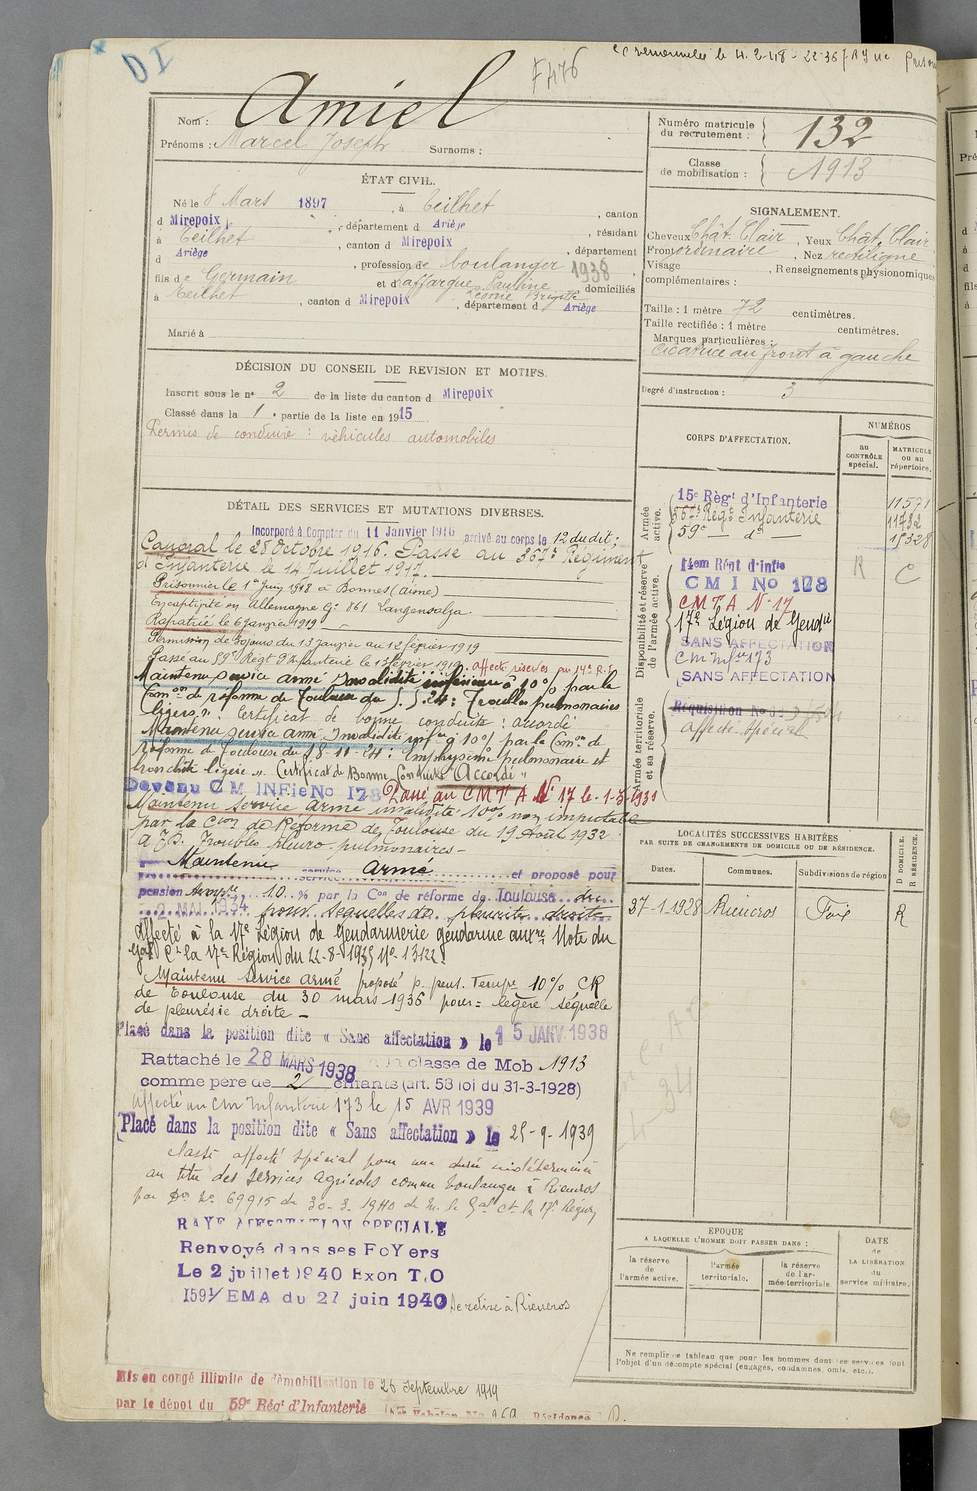 DI
F476
Nom : Amiel
Prénoms : Marcel Joseph Surnoms :
Numéro matricule du recrutement : 132
Classe de mobilisation : 1913
ÉTAT CIVIL.
Né le 8 Mars 1897, à Teilhet, canton
d Mirepoix, département d Ariège, résidant
à Teilhet, canton d Mirepoix, département
d Ariège, profession de boulanger 1938
fils de Germain et de Laffargue Pauline domiciliés
Léonie Brigitte
à Teilhet, canton d Mirepoix, département d Ariège
Marié à
SIGNALEMENT.
Cheveux Chât. Clair, Yeux Chât. Clair
Front ordinaire, Nez rectiligne
Visage , Renseignements physionomiques
complémentaires :
Taille : 1 mètre 72 centimètres.
Taille rectifiée : 1 mètre centimètres.
Marques particulières :
Cicatrice au front à gauche
Degré d'instruction : 3
DÉCISION DU CONSEIL DE REVISION ET MOTIFS.
Inscrit sous le n° 2 de la liste du canton d Mirepoix
Classé dans la 1e partie de la liste en 1915
Permis de conduire : véhicules automobiles
CORPS D'AFFECTATION.
NUMÉROS
au CONTRÔLE spécial.
MATRICULE ou au répertoire.
Armée active.
15e Régt d'Infanterie 11571
367e Régt Infanterie 11782
59e — do — 15328
Disponibilité et réserve de l'armée active.
14em Rént d'infie R C
CMI No 178
CMTA N° 17
17e Légion de Gendie
SANS AFFECTATION
CM Infie 173
SANS AFFECTATION
Armée territoriale et sa réserve.
Affecté Spécial
DÉTAIL DES SERVICES ET MUTATIONS DIVERSES.
Incorporé à Compter du 11 Janvier 1916 arrivé au corps le 12 du dit :
Caporal le 28 Octobre 1916. Passé au 367e Régiment
d'Infanterie le 14 Juillet 1917.
Prisonnier le 1er Juin 1918 à Bonnes (Aisne)
En captivité en Allemagne G. 861 Langensalza.
Rapatrié le 6 janvier 1919
Permission de 30 jours du 13 Janvier au 12 février 1919
Passé au 59e Régt d'Infanterie le 13 février 1919. Affecté réserves au 14e R.I.
Maintenu service armé invalidité inférieure à 10% par la
Comon de réforme de Toulouse du : Troubles pulmonaires
légers". Certificat de bonne conduite : accordé
Maintenu service armé Invalidité infre à 10% par la Comon de
réforme de Toulouse du 18-11-24 : Emphysème pulmonaire et
bronchite légère". Certificat de Bonne Conduite "Accordé"
Devenu CM INFie No 178 Passé au CMTA N° 17 le 1-3-1931
Maintenu service armé invalidité 10% non imputable
par la Cion de Réforme de Toulouse du 19 Août 1932
Troubles pleuro-pulmonaires —
Maintenu service armé et proposé pour
pension tempre 10 % par la Con de réforme de Toulouse du
2 MAI 1934 pour séquelles de pleurite droite
Affecté à la 17e Légion de Gendarmerie gendarme auxre Note du
Gal Ct la 17e Région du 22-8-1935 No 13122.
Maintenu service armé proposé p. pens. Tempre 10% CR
de Toulouse du 30 mars 1936 pour = légère séquelle
de pleurésie droite —
Placé dans la position dite « Sans affectation » le 15 JANV 1938
Rattaché le 28 MARS 1938 à la classe de Mob 1913
comme père de 2 enfants (art. 58 loi du 31-3-1928)
Affecté au CM Infanterie 173 le 15 AVR 1939
Placé dans la position dite « Sans affectation » le 25-9-1939
Classé affecté spécial pour une durée indéterminée
au titre des services agricoles comme boulanger à Rieucros
par Don No 69915 du 30-3-1940 de M. le Gal Ct la 17e Région
RAYE AFFECTATION SPECIALE
Renvoyé dans ses FoYers
Le 2 juillet 1940 Exon T.O
1591/EMA du 27 juin 1940 Se retire à Rieucros
LOCALITÉS SUCCESSIVES HABITÉES
PAR SUITE DE CHANGEMENTS DE DOMICILE OU DE RÉSIDENCE.
Dates. Communes. Subdivisions de région D DOMICILE. R RÉSIDENCE.
27-1-1928 Rieucros Foix R
EPOQUE
A LAQUELLE L'HOMME DOIT PASSER DANS :
la réserve de l'armée active.
l'armée territoriale.
la réserve de l'armée territoriale.
DATE de LA LIBÉRATION du service militaire.
Ne remplir ce tableau que pour les hommes dont les services font
l'objet d'un décompte spécial (engagés, condamnés, omis, etc.).
Mis en congé illimité de démobilisation le 26 Septembre 1919
par le dépôt du 59e Régt d'Infanterie